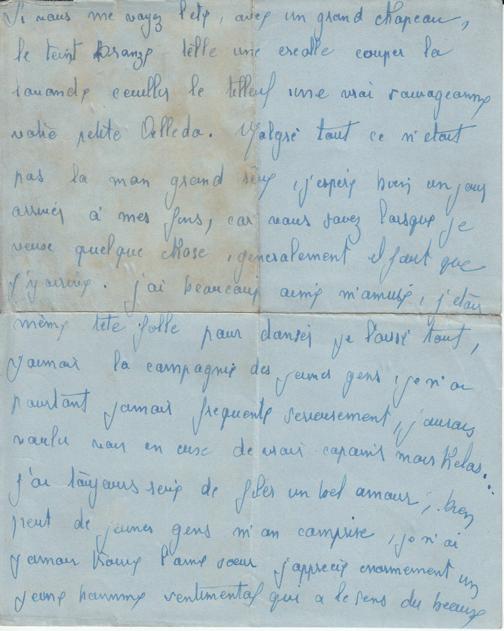 Si vous me voyez l'eté, avec un grand chapeau,
le teint bronze telle une creolle couper la
lavande ceuillir le tilleul une vrai sauvageonne
votre petite Velleda. Malgré tout ce n'etait
pas la mon grand rêve, j'espere bien un jour
arriver à mes fins, car vous savez lorsque je
veux quelque chose, generalement il faut que
j'y arrive. j'ai beaucoup aimé m'amuser, j'etais
même tête folle pour danser je laissé tout,
j'aimais la compagnie des jeunes gens, je n'ai
pourtant jamais frequenté serieusement, j'aurais
voulu voir en eux de vrais copains mais helas..
j'ai toujours revé de filer un bel amour, bien
peut de jeunes gens m'on comprise, je n'ai
jamais trouvé l'ame soeur j'apprecie enormement un
jeune homme sentimental qui a le sens du beau